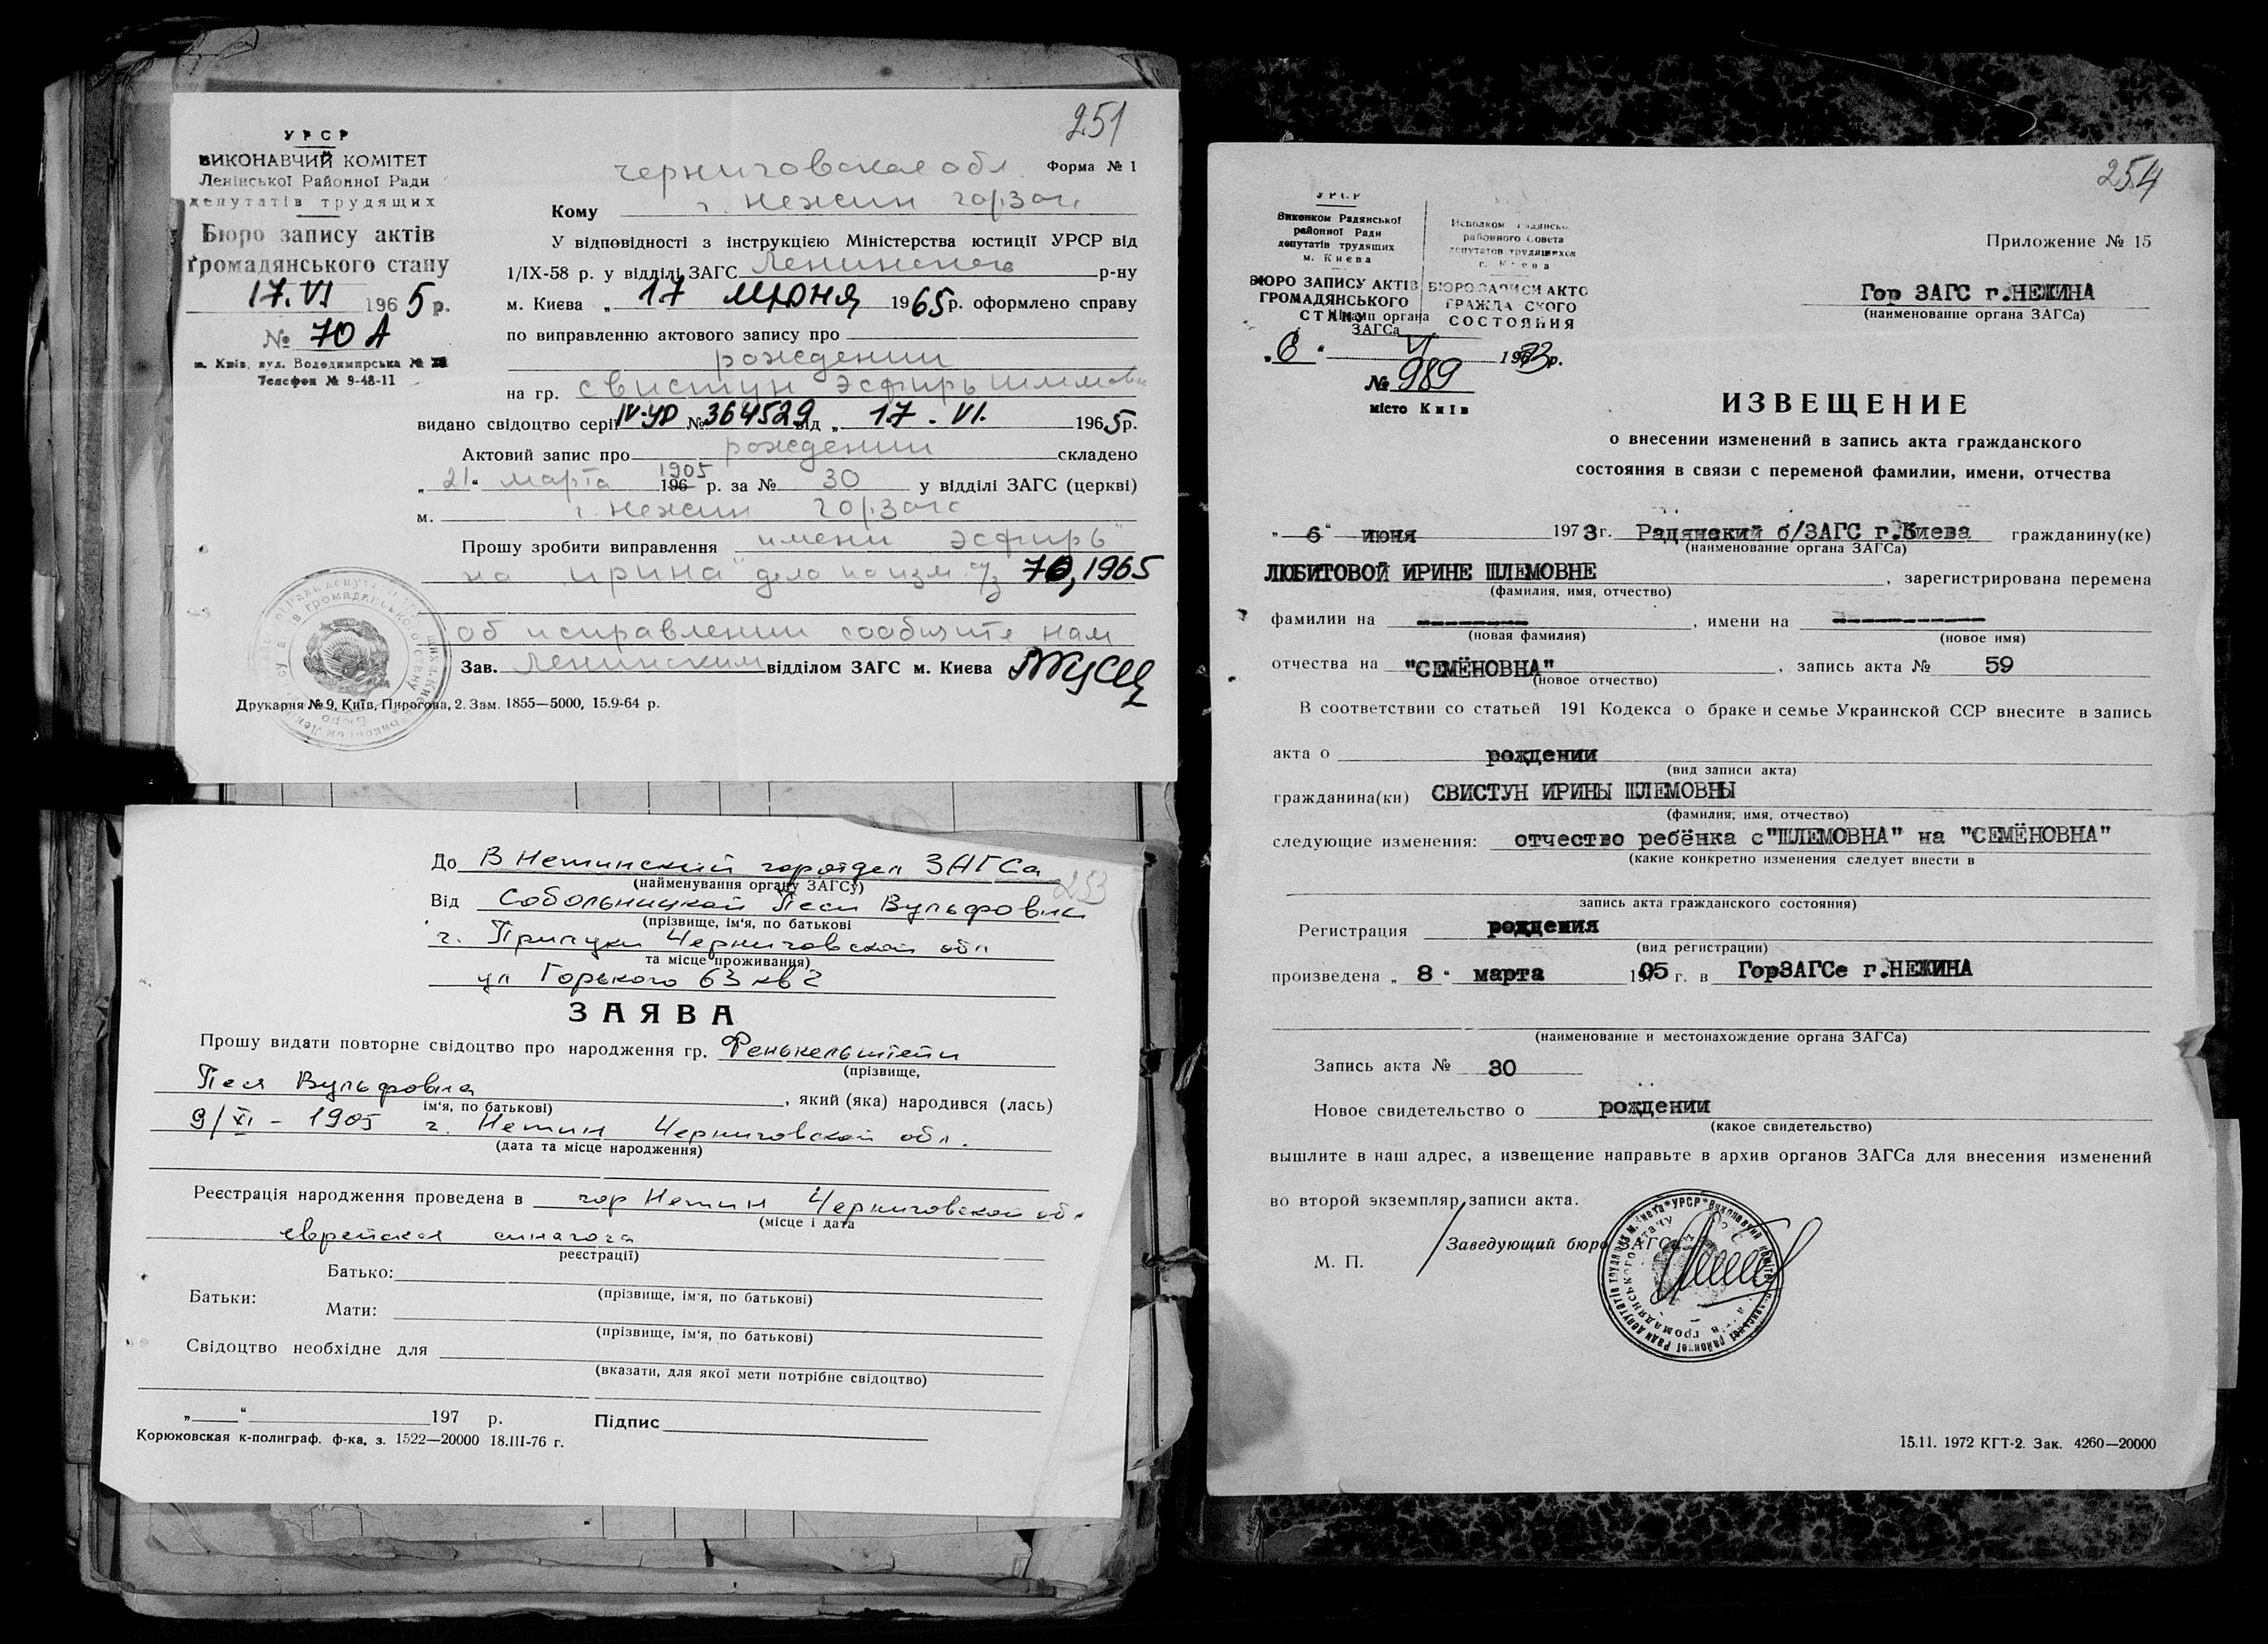 251
УРСР
ВИКОНАВЧИЙ КОМІТЕТ
Ленінської Районної Ради
депутатів трудящих
Бюро запису актів
громадянського стану
17.VI 1965 р.
№ 70 А
м. Київ, вул. Володимирська №
Телефон № 9-48-11
Форма № 1
Черниговская обл.
Кому г. Нежин горзагс
У відповідності з інструкцією Міністерства юстиції УРСР від
1/IX-58 р. у відділі ЗАГС Ленинского р-ну
м. Києва „ 17 июня 1965р. оформлено справу
по виправленню актового запису про
рождении
на гр. Свистун Эсфирь Шлемовн
видано свідоцтво серії IV-УР № 364529 від „ 17 . VI. 1965р.
Актовий запис про рождении складено
„ 21 “ марта 1905 196 р. за № 30 у відділі ЗАГС (церкві)
м. г. Нежин горзагс
Прошу зробити виправлення имени „Эсфирь“
на „Ирина“ дело по изм. а/з 70, 1965
об исправлении сообщите нам
Зав. Ленинским відділом ЗАГС м. Києва
Друкарня № 9, Київ, Пирогова, 2. Зам. 1855—5000, 15.9-64 р.
253
До В Нежинский горотдел ЗАГСа
(найменування органу ЗАГСу)
Від Собольницкой Песи Вульфовны
(прізвище, ім'я, по батькові
г. Прилуки Черниговской обл
та місце проживання)
ул Горького 63 кв 2
ЗАЯВА
Прошу видати повторне свідоцтво про народження гр. Фенькельштейн
(прізвище,
Песя Вульфовна , який (яка) народився (лась)
ім'я, по батькові)
9/XI - 1905 г. Нежин Черниговской обл.
(дата та місце народження)
Реєстрація народження проведена в гор Нежин Черниговской обл
(місце і дата
еврейская синагога
реєстрації)
Батько:
(прізвище, ім'я, по батькові)
Батьки:
Мати:
(прізвище, ім'я, по батькові)
Свідоцтво необхідне для
(вказати, для якої мети потрібне свідоцтво)
„ “ 197 р. Підпис
Корюковская к-полиграф. ф-ка, з. 1522—20000 18.III-76 г.
254
УРСР
Виконком Радянської
районної Ради
депутатів трудящих
м. Києва
БЮРО ЗАПИСУ АКТІВ
ГРОМАДЯНСЬКОГО
СТАНУ
Исполком Радянско
районного Совета
депутатов трудящихся
г. Киева
БЮРО ЗАПИСИ АКТО
ГРАЖДА СКОГО
СОСТОЯНИЯ
Штамп органа
ЗАГСа
„ 6 “ VI 1973р.
№ 989
місто Київ
Приложение № 15
Гор ЗАГС г.НЕЖИНА
(наименование органа ЗАГСа)
ИЗВЕЩЕНИЕ
о внесении изменений в запись акта гражданского
состояния в связи с переменой фамилии, имени, отчества
„ 6 “ июня 1973г. Радянский б/ЗАГС г.Киева гражданину(ке)
(наименование органа ЗАГСа)
ЛЮБИТОВОЙ ИРИНЕ ШЛЕМОВНЕ , зарегистрирована перемена
(фамилия, имя, отчество)
фамилии на ---------- , имени на ----------
(новая фамилия) (новое имя)
отчества на "СЕМЁНОВНА" , запись акта № 59
(новое отчество)
В соответствии со статьей 191 Кодекса о браке и семье Украинской ССР внесите в запись
акта о рождении
(вид записи акта)
гражданина(ки) СВИСТУН ИРИНЫ ШЛЕМОВНЫ
(фамилия, имя, отчество)
следующие изменения: отчество ребёнка с"ШЛЕМОВНА" на "СЕМЁНОВНА"
(какие конкретно изменения следует внести в
запись акта гражданского состояния)
Регистрация рождения
(вид регистрации)
произведена „ 8 “ марта 1905 г. в ГорЗАГСе г.НЕЖИНА
(наименование и местонахождение органа ЗАГСа)
Запись акта № 30
Новое свидетельство о рождении
(какое свидетельство)
вышлите в наш адрес, а извещение направьте в архив органов ЗАГСа для внесения изменений
во второй экземпляр записи акта.
Заведующий бюро ЗАГСа
М. П.
15.11. 1972 КГТ-2. Зак. 4260—20000